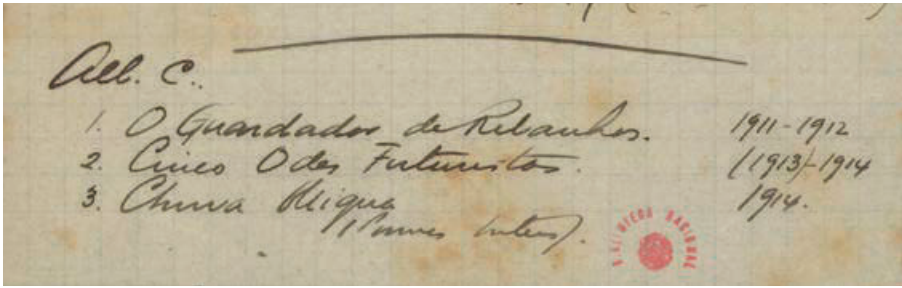 Alb. C..
1. O Guardador de Rebanhos. 1911-1912
2. Cinco Odes Futuristas. (1913)-1914
3. Chuva Obliqua 1914.
(Poemas Inters).
BIBLIOTECA NACIONAL